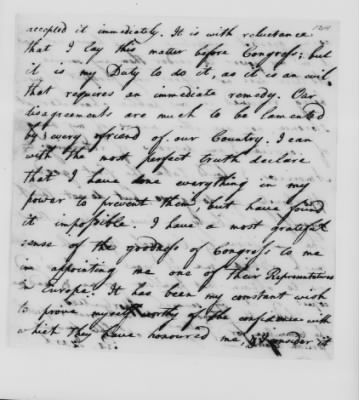 accepted it immediately. It is with reluctance
that I lay this matter before Congress; but
it is my Duty to do it, as it is an evil
that requires an immediate remedy. Our
disagreements are much to be lamented
by every friend of our Country. I can
with the most perfect truth declare
that I have done everything in my
power to prevent them, but have found
it impossible. I have a most grateful
sense of the goodness of Congress to me
in appointing me one of their Representatives
in Europe. It has been my constant wish
to prove myself worthy of the confidence with
which they have honoured me, I consider it